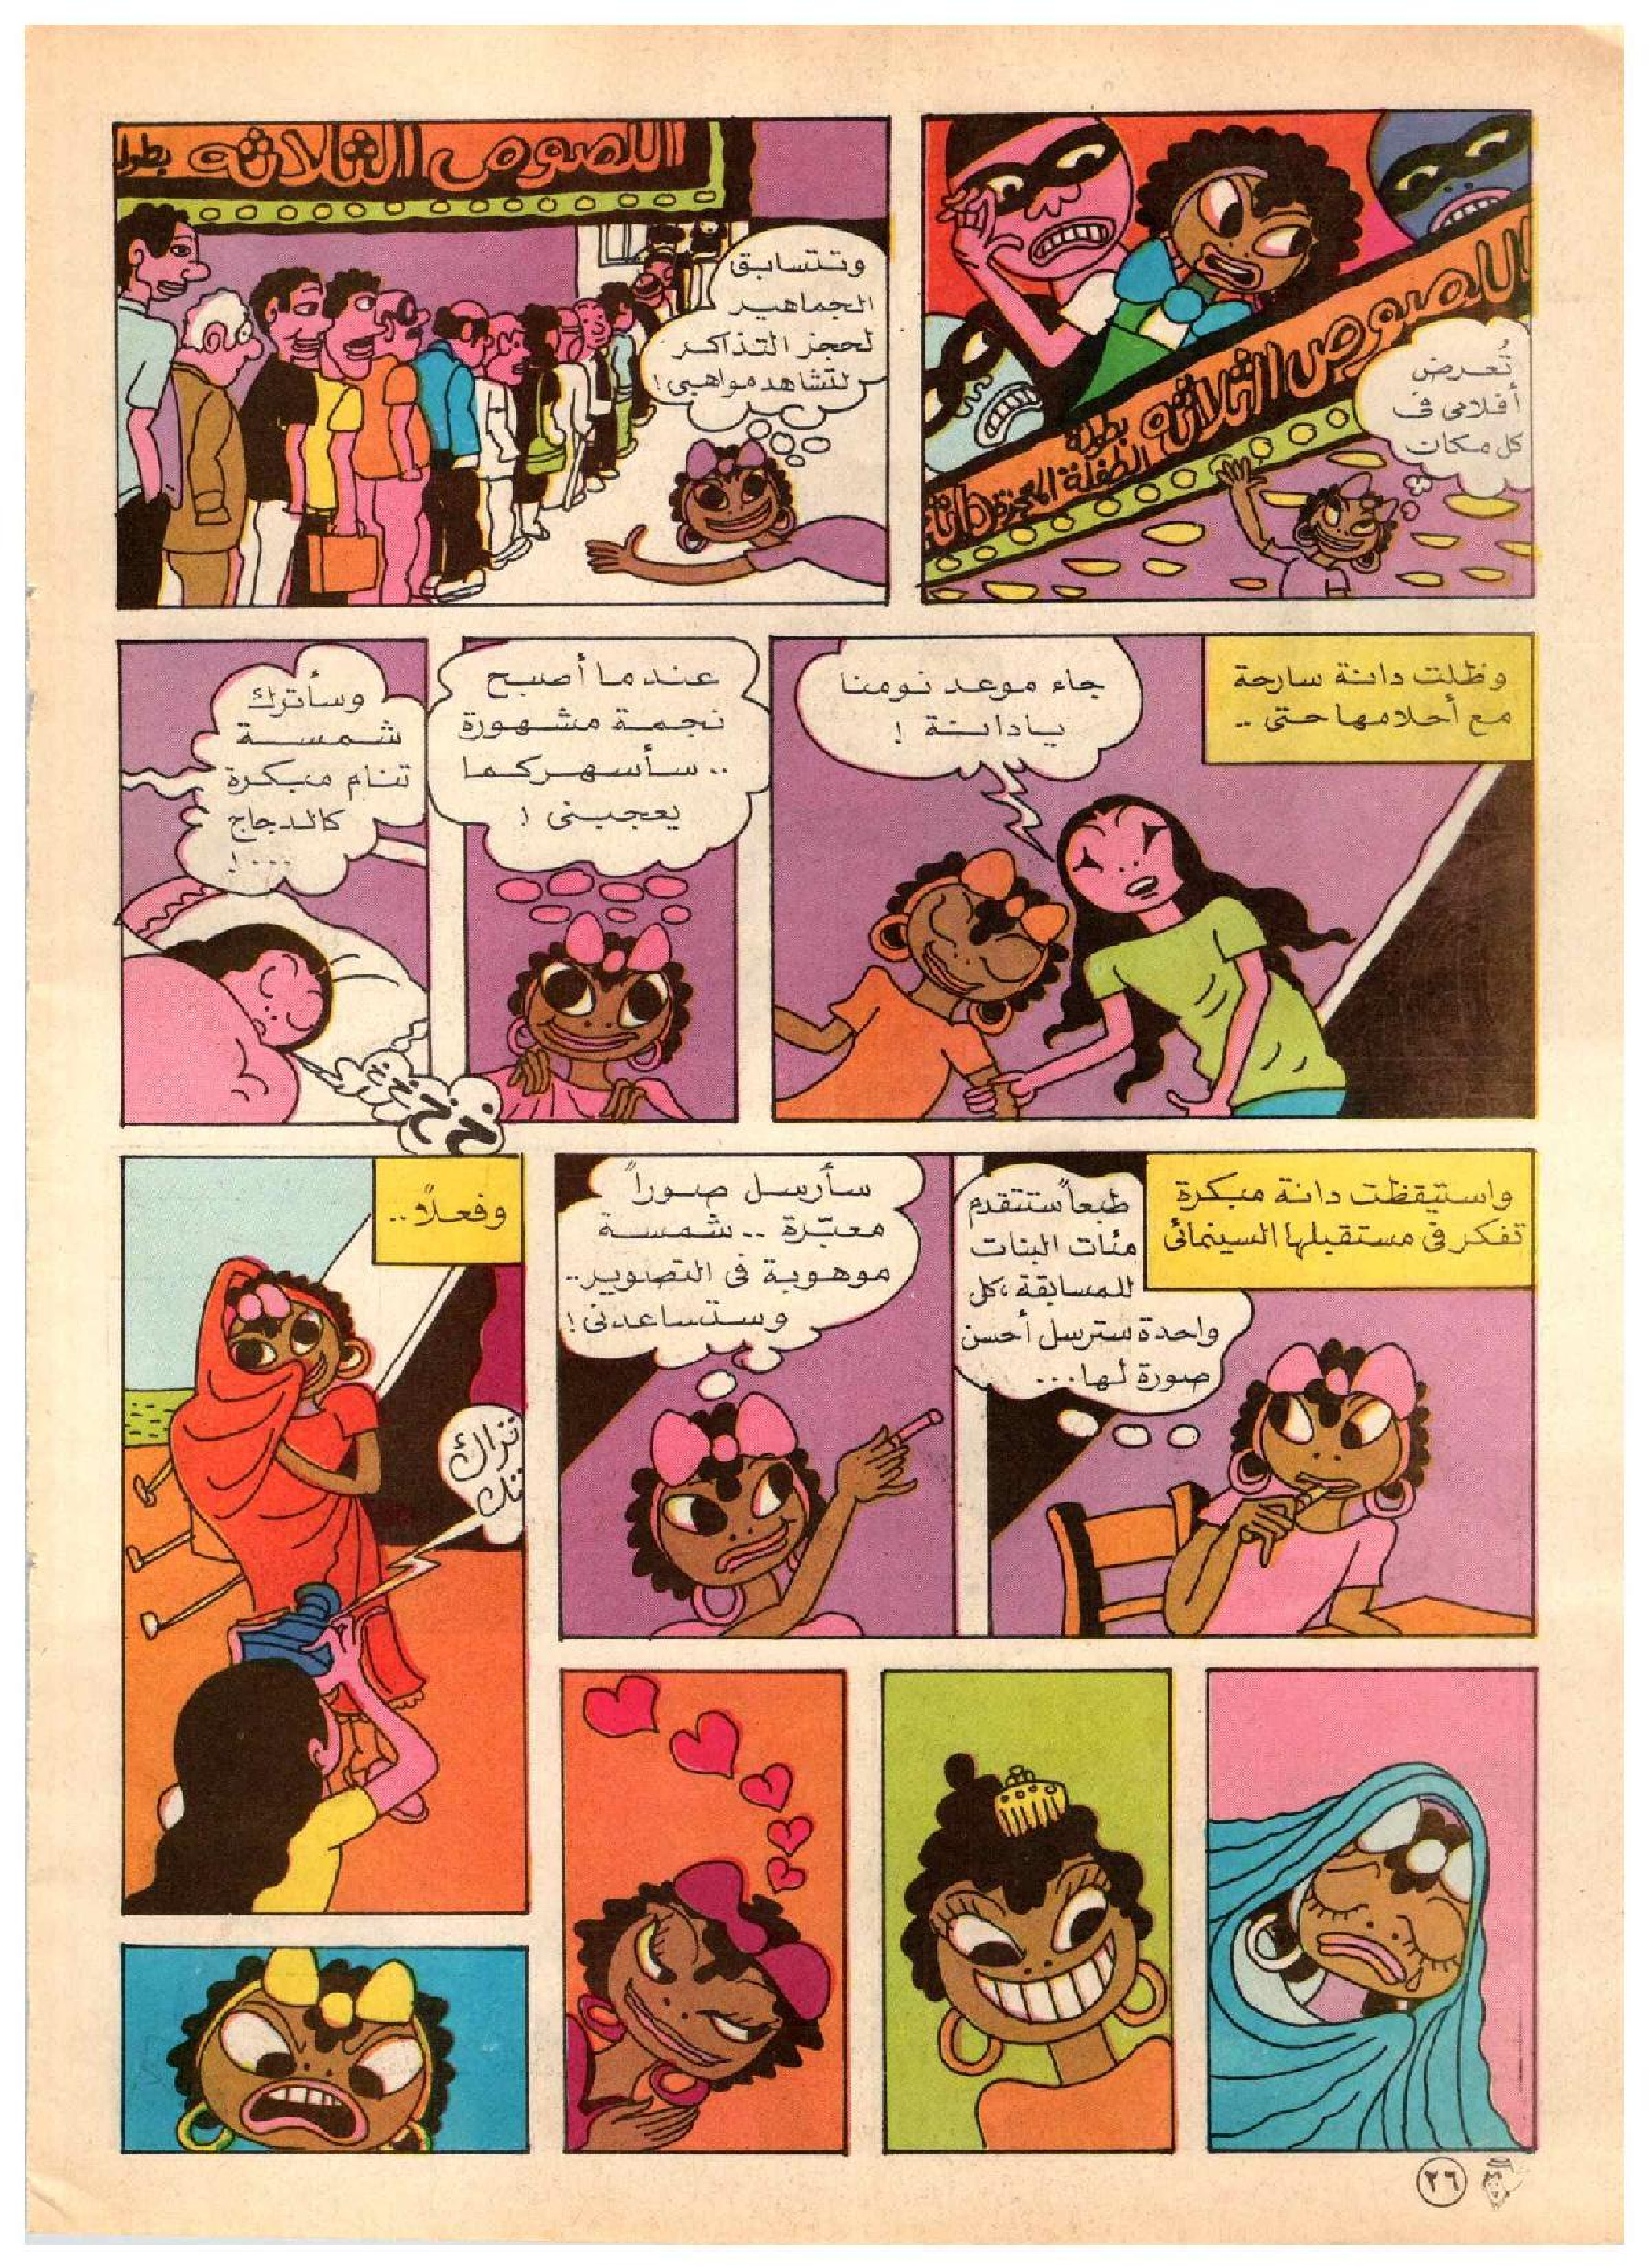 اللصوص الثلاثة
بطولة
الطفلة المعجزة دانة
تُعرض
أفلامى فى
كل مكان
اللصوص الثلاثة بطول
وتتسابق
الجماهير
لحجز التذاكر
لتشاهد مواهبى!
وظلت دانة سارحة
مع أحلامها حتى ..
جاء موعد نومنا
يا دانة !
عندما أصبح
نجمة مشهورة
.. سأسهر كما
يعجبنى !
وسأترك
شمسة
تنام مبكرة
كالدجاج
...!
خ خ خ خ
واستيقظت دانة مبكرة
تفكر فى مستقبلها السينمائى
طبعاً ستتقدم
مئات البنات
للمسابقة، كل
واحدة سترسل أحسن
صورة لها...
سأرسل صوراً
معبّرة .. شمسة
موهوبة فى التصوير..
وستساعدنى!
وفعلاً..
تراك
تك
٢٦